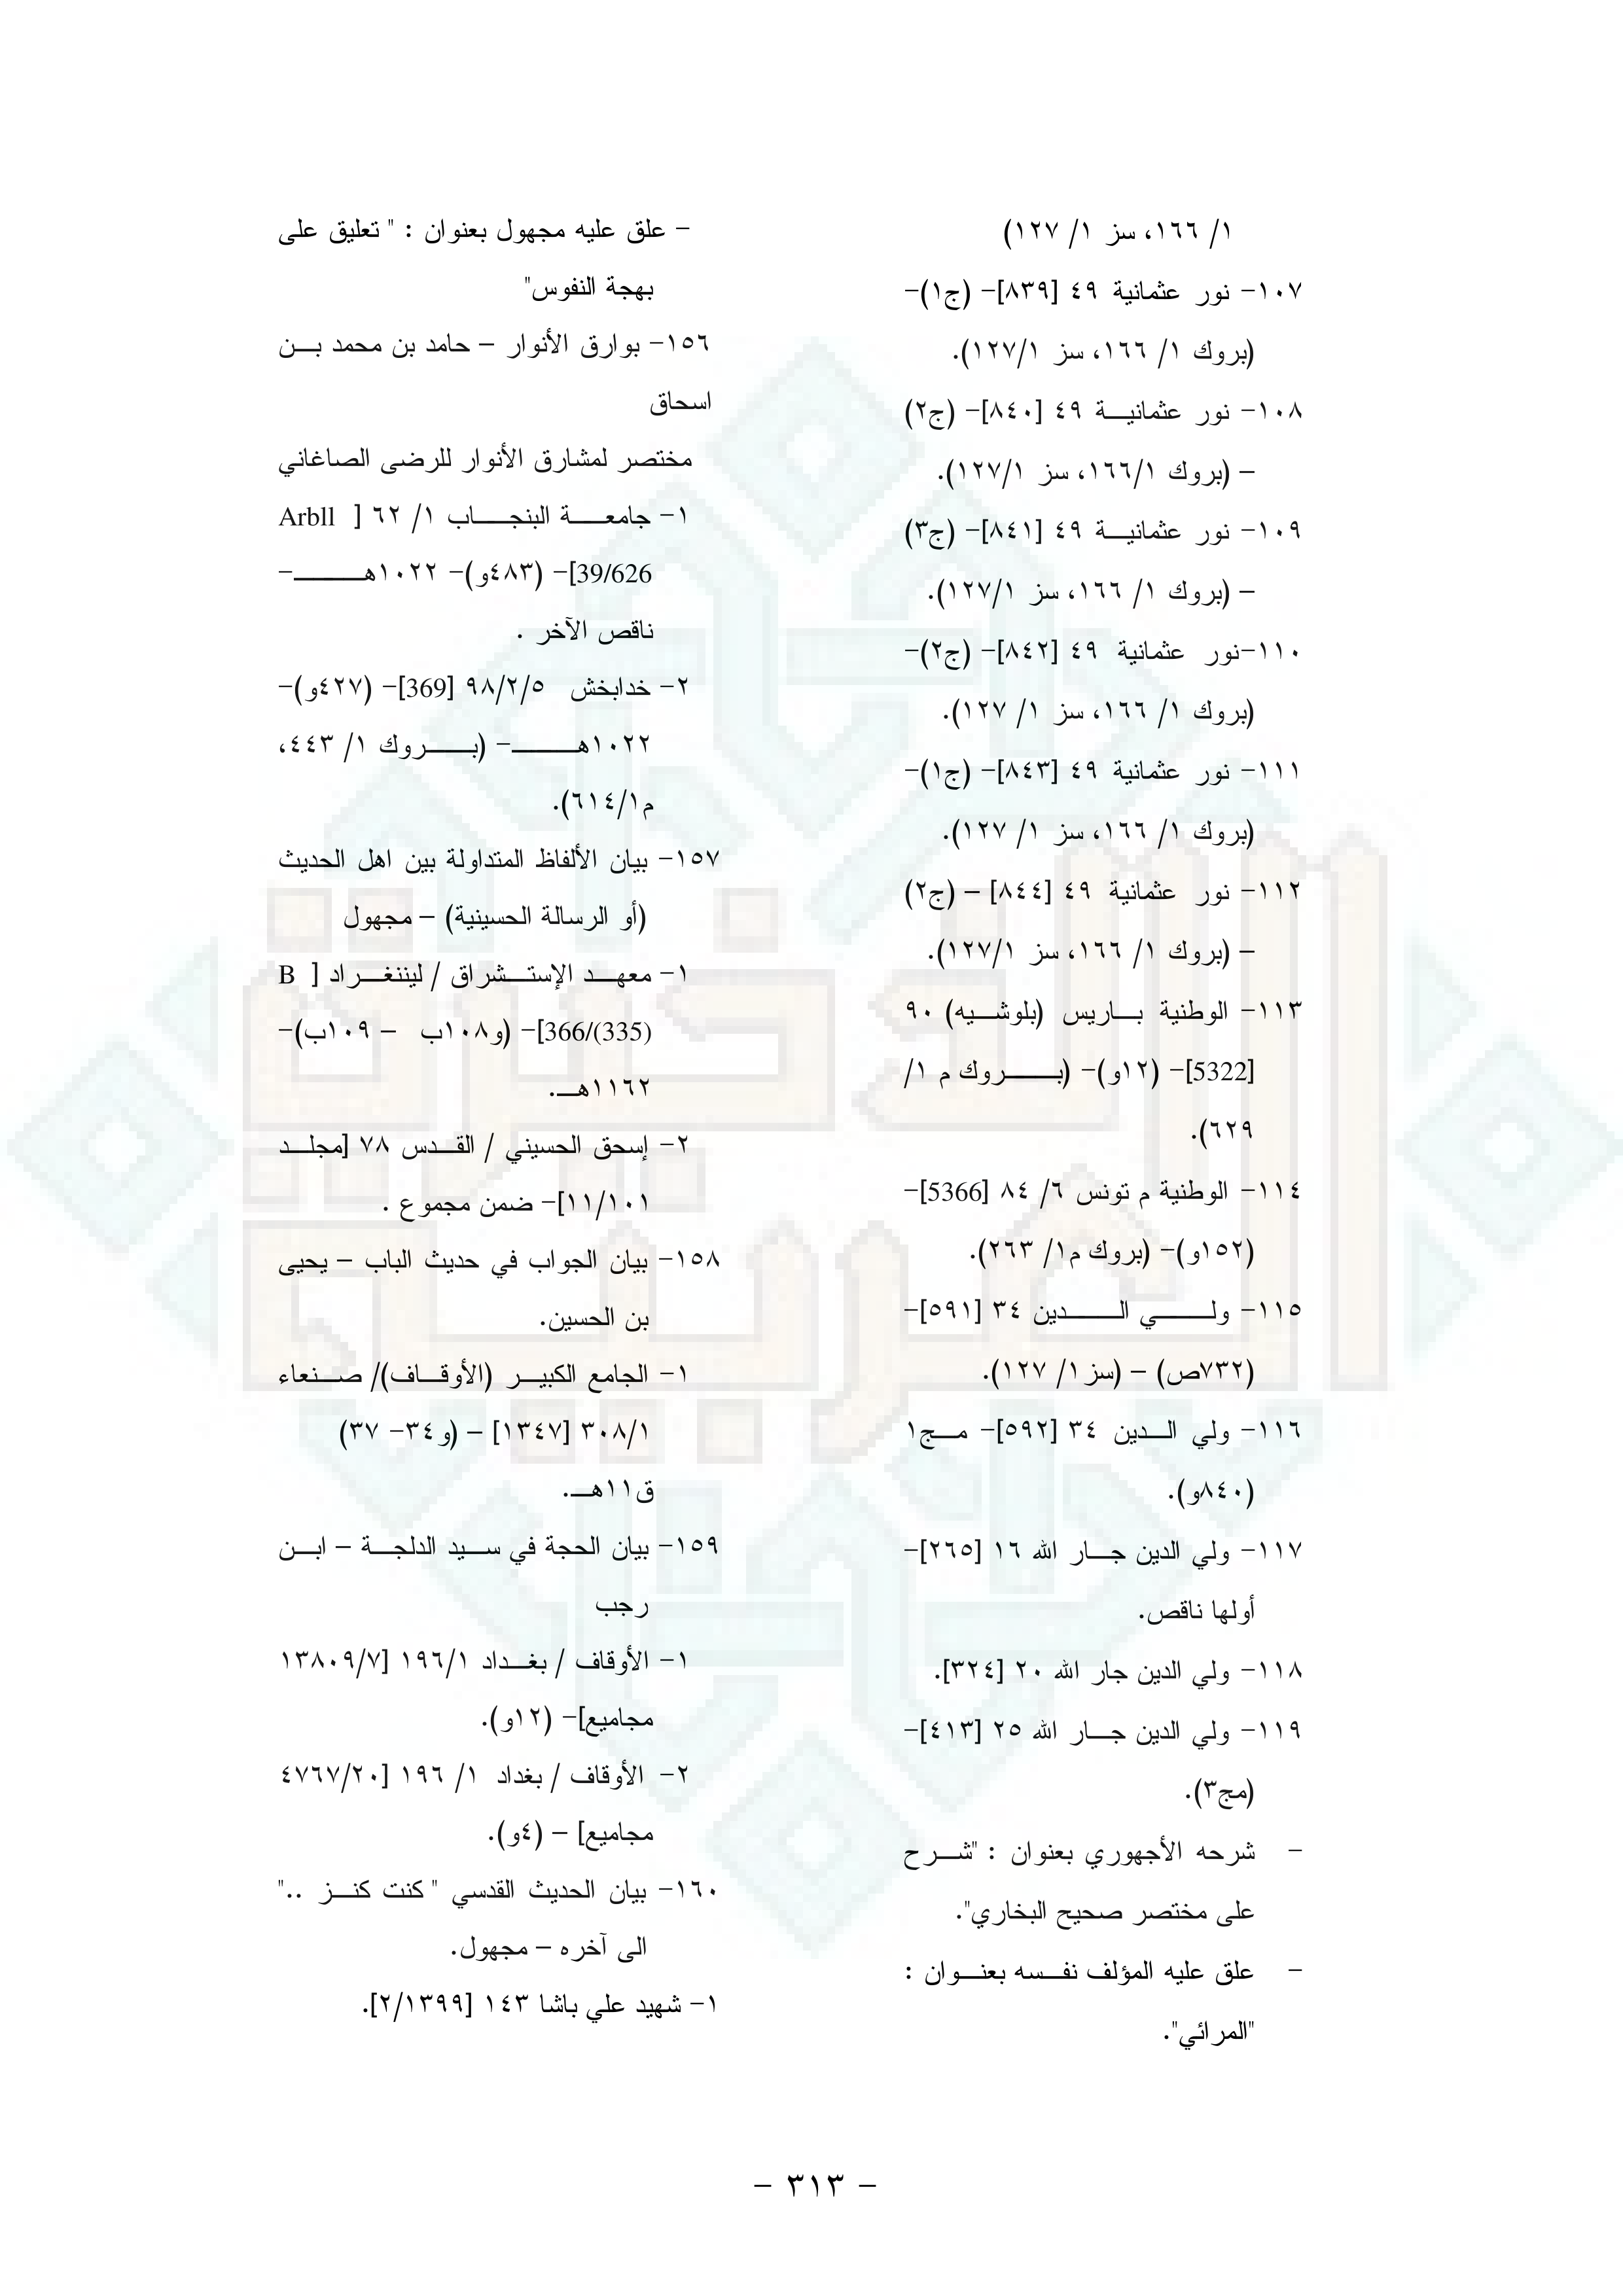 ١/ ١٦٦، سز ١/ ١٢٧)
١٠٧- نور عثمانية ٤٩ [٨٣٩]- (ج١)-
(بروك ١/ ١٦٦، سز ١/١٢٧).
١٠٨- نور عثمانيـة ٤٩ [٨٤٠]- (ج٢)
– (بروك ١/١٦٦، سز ١/١٢٧).
١٠٩- نور عثمانيـة ٤٩ [٨٤١]- (ج٣)
– (بروك ١/ ١٦٦، سز ١/١٢٧).
١١٠-نور عثمانية ٤٩ [٨٤٢]- (ج٢)-
(بروك ١/ ١٦٦، سز ١/ ١٢٧).
١١١- نور عثمانية ٤٩ [٨٤٣]- (ج١)-
(بروك ١/ ١٦٦، سز ١/ ١٢٧).
١١٢- نور عثمانية ٤٩ [٨٤٤] – (ج٢)
– (بروك ١/ ١٦٦، سز ١/١٢٧).
١١٣- الوطنية بـاريس (بلوشـيه) ٩٠
[5322]- (١٢و)- (بـــروك م ١/
٦٢٩).
١١٤- الوطنية م تونس ٦/ ٨٤ [5366]-
(١٥٢و)- (بروك م١/ ٢٦٣).
١١٥- ولـــي الـــدين ٣٤ [٥٩١]-
(٧٣٢ص) – (سز١/ ١٢٧).
١١٦- ولي الـدين ٣٤ [٥٩٢]- مـج١
(٨٤٠و).
١١٧- ولي الدين جـار الله ١٦ [٢٦٥]-
أولها ناقص.
١١٨- ولي الدين جار الله ٢٠ [٣٢٤].
١١٩- ولي الدين جـار الله ٢٥ [٤١٣]-
(مج٣).
- شرحه الأجهوري بعنوان : "شـرح
على مختصر صحيح البخاري".
- علق عليه المؤلف نفـسه بعنـوان :
"المرائي".
- علق عليه مجهول بعنوان : " تعليق على
بهجة النفوس"
١٥٦- بوارق الأنوار – حامد بن محمد بـن
اسحاق
مختصر لمشارق الأنوار للرضى الصاغاني
١- جامعـــة البنجـــاب ١/ ٦٢ [ Arbll
39/626]- (٤٨٣و)- ١٠٢٢هـــــ-
ناقص الآخر .
٢- خدابخش ٩٨/٢/٥ [369]- (٤٢٧و)-
١٠٢٢هـــــ- (بـــروك ١/ ٤٤٣،
م١/٦١٤).
١٥٧- بيان الألفاظ المتداولة بين اهل الحديث
(أو الرسالة الحسينية) – مجهول
١- معهـد الإستـشراق / ليننغـراد [ B
366/(335)]- (و١٠٨ب – ١٠٩ب)-
١١٦٢هـ.
٢- إسحق الحسيني / القـدس ٧٨ [مجلـد
١١/١٠١]- ضمن مجموع .
١٥٨- بيان الجواب في حديث الباب – يحيى
بن الحسين.
١- الجامع الكبيـر (الأوقـاف)/ صـنعاء
٣٠٨/١ [١٣٤٧] – (و٣٤- ٣٧)
ق١١هـ.
١٥٩- بيان الحجة في سـيد الدلجـة – ابـن
رجب
١- الأوقاف / بغـداد ١٩٦/١ [١٣٨٠٩/٧
مجاميع]- (١٢و).
٢- الأوقاف / بغداد ١/ ١٩٦ [٤٧٦٧/٢٠
مجاميع] – (٤و).
١٦٠- بيان الحديث القدسي " كنت كنـز .."
الى آخره – مجهول.
١- شهيد علي باشا ١٤٣ [٢/١٣٩٩].
- ٣١٣ -